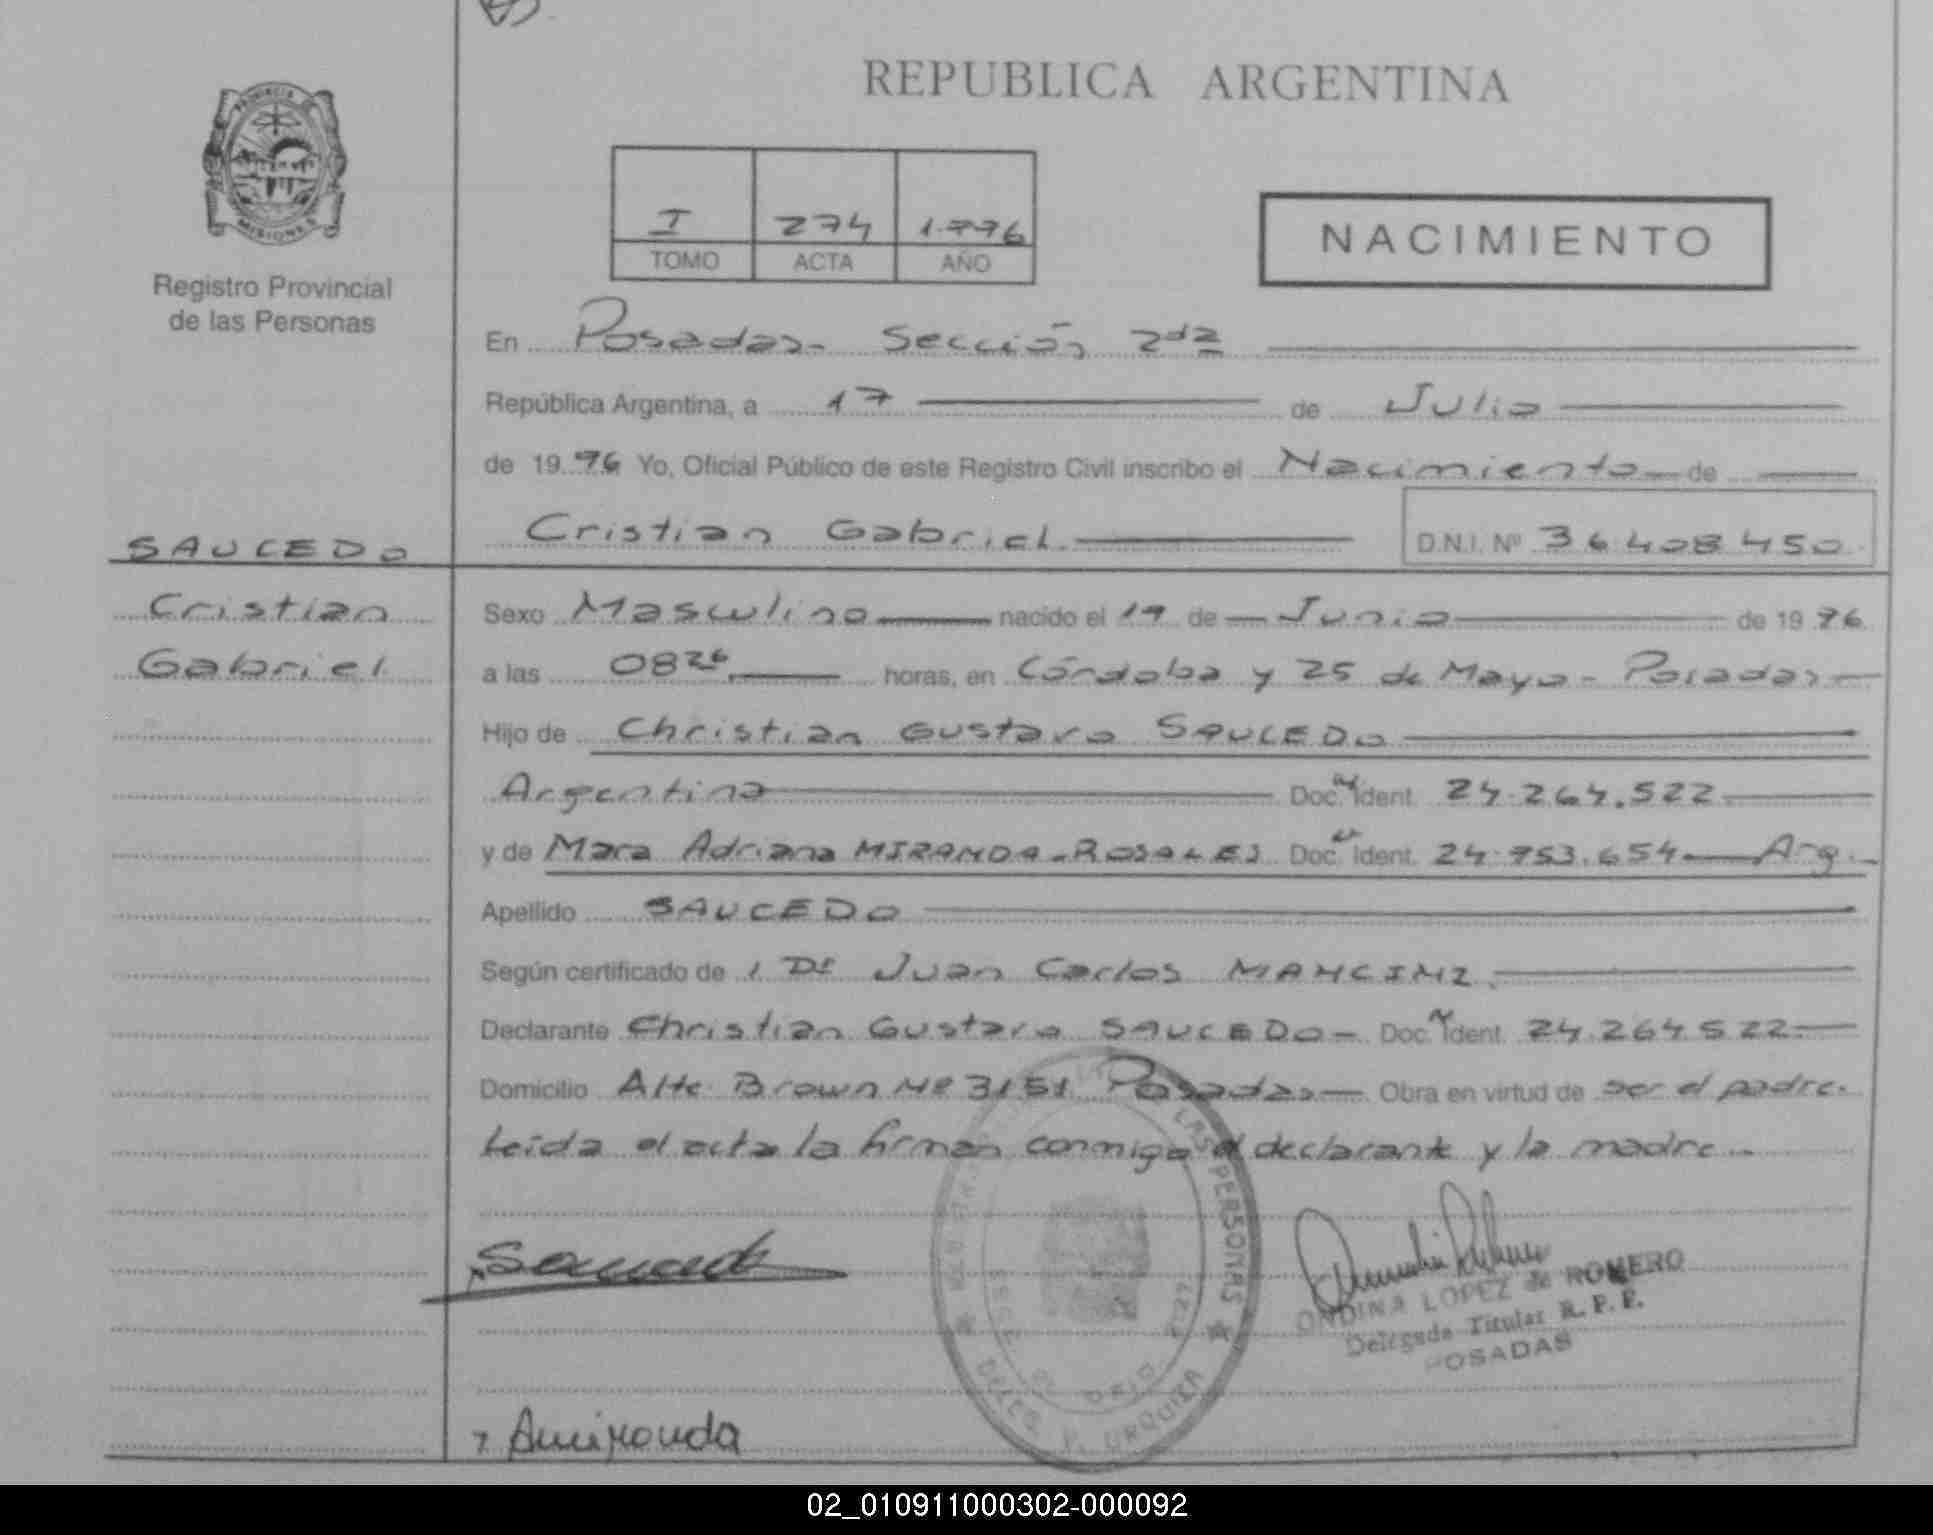 REPUBLICA ARGENTINA
PROVINCIA DE
MISIONES
Registro Provincial
de las Personas
I 274 1.996
TOMO ACTA AÑO
NACIMIENTO
En Posadas- Sección 2da
República Argentina, a 17 de Julio
de 1996 Yo, Oficial Público de este Registro Civil inscribo el Nacimiento de
SAUCEDO
Cristian Gabriel D.N.I. Nº 36.408.450
Cristian
Gabriel
Sexo Masculino nacido el 19 de Junio de 1996
a las 08 26 horas, en Córdoba y 25 de Mayo - Posadas
Hijo de Christian Gustavo SAUCEDO
Argentino Doc. Ident. 24.264.522
y de Mara Adriana MIRANDA-ROSALES Doc. Ident. 24.953.654 Arg.
Apellido SAUCEDO
Según certificado de l Dr Juan Carlos MANCINI
Declarante Christian Gustavo SAUCEDO Doc. Ident. 24.264.522
Domicilio Alte. Brown Nº 3151 Posadas Obra en virtud de ser el padre.
Leida el acta la firman conmigo el declarante y la madre
LAS PERSONAS
URQUIZA
ONDINA LOPEZ de ROMERO
Delegada Titular R. P. P.
POSADAS
Amironda
02_010911000302-000092